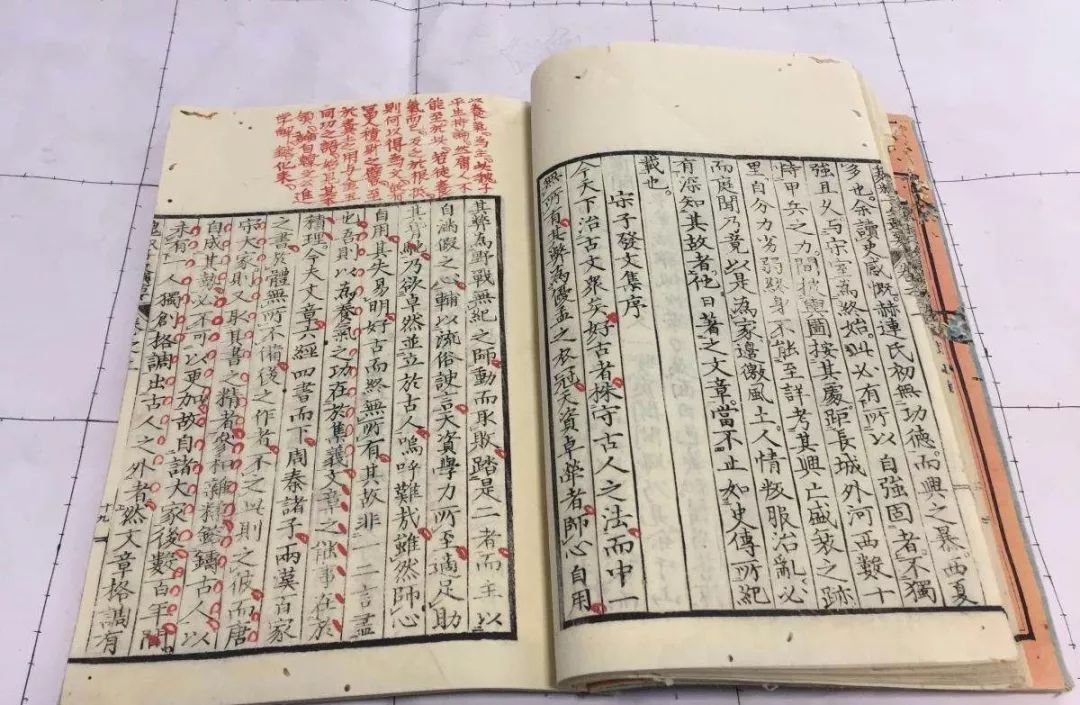 多也余讀史感慨赫連氏初無功德而興之暴西夏
強且久與宋室為終始此必有所以自強固者不獨
恃甲兵之力間披輿圖按其處距長城外河西數十
里自分力劣弱身不能至詳考其興亡盛衰之跡
而庭聞乃竟以是為家邊徼風土人情叛服治亂必
有深知其故者他日著之文章當不止如史傳所紀
載也
宗子發文集序
今天下治古文眾矣好古者株守古人之法而中一
無所有其弊為優孟之衣冠天資卓犖者師心自用
以養氣為主魏子
平生持論然庸人不
則何以得為文
同功之語
領論自韓文公進
學解變化來
其弊為野戰無紀之師動而取敗蹈是二者而主以
自滿假之心輔以流俗諛言天資學力所至適足助
其背馳乃欲卓然並立於古人嗚呼難哉雖然師心
自用其失易明好古而終無所有其故非一二言盡
也吾則以為養氣之功在於集義文章之能事在於
積理今夫文章六經四書而下周秦諸子兩漢百家
之書於體無所不備後之作者不之此則之彼而唐
宋大家則又取其書之精者參和雜糅鎔鑄古人以
自成其勢必不可以更加故自諸大家後數百年間
未有一人獨創格調出古人之外者然文章格調有
十九